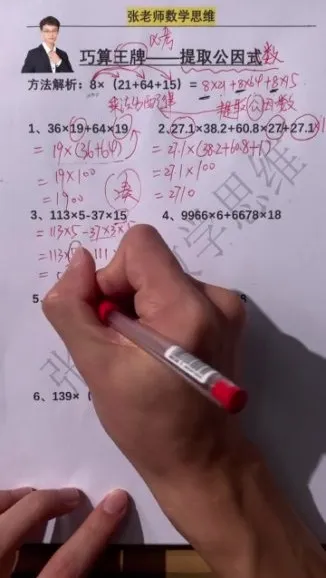 张老师数学思维
必考
巧算王牌——提取公因式数
方法解析：8×（21+64+15）= 8×21+8×64+8×15
乘法分配律 提取公因数
1、36×19+64×19
= 19×(36+64)
= 19×100
= 1900
2、27.1×38.2+60.8×27+27.1×1
= 27.1×(38.2+60.8+1)
= 27.1×100
= 2710
3、113×5-37×15
= 113×5-37×3×5
= 113×5 111
4、9966×6+6678×18
5、
6、139×（